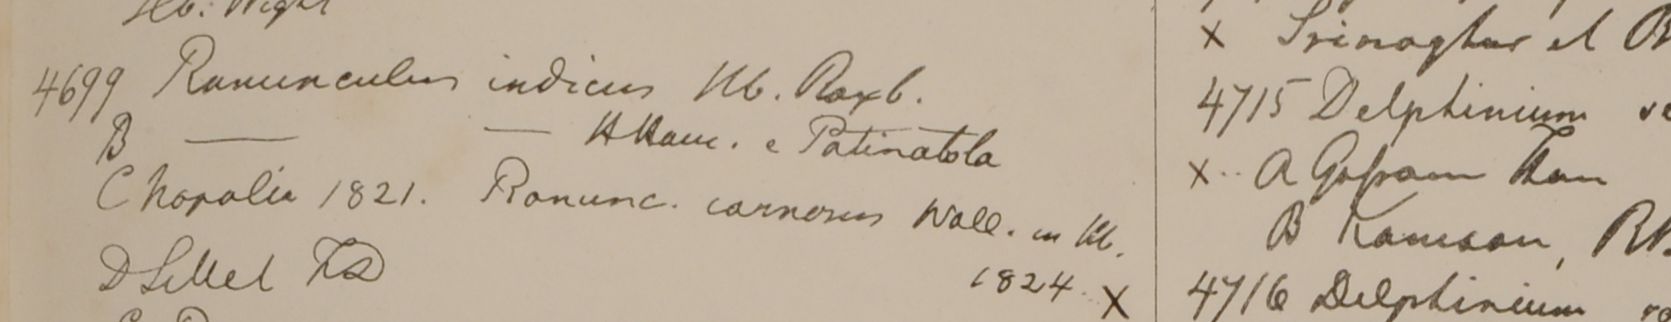 Hb. Wight
4699 Ranunculus indicus Hb. Roxb.
B — — HHam. e Patinatola
C Napalia 1821. Ranunc. carnosus Wall. in Hb.
1824 X
D Sillet FD
X Srinaghur et
4715 Delphinium
X A Gosam Than
B Kamaon,
4716 Delphinium